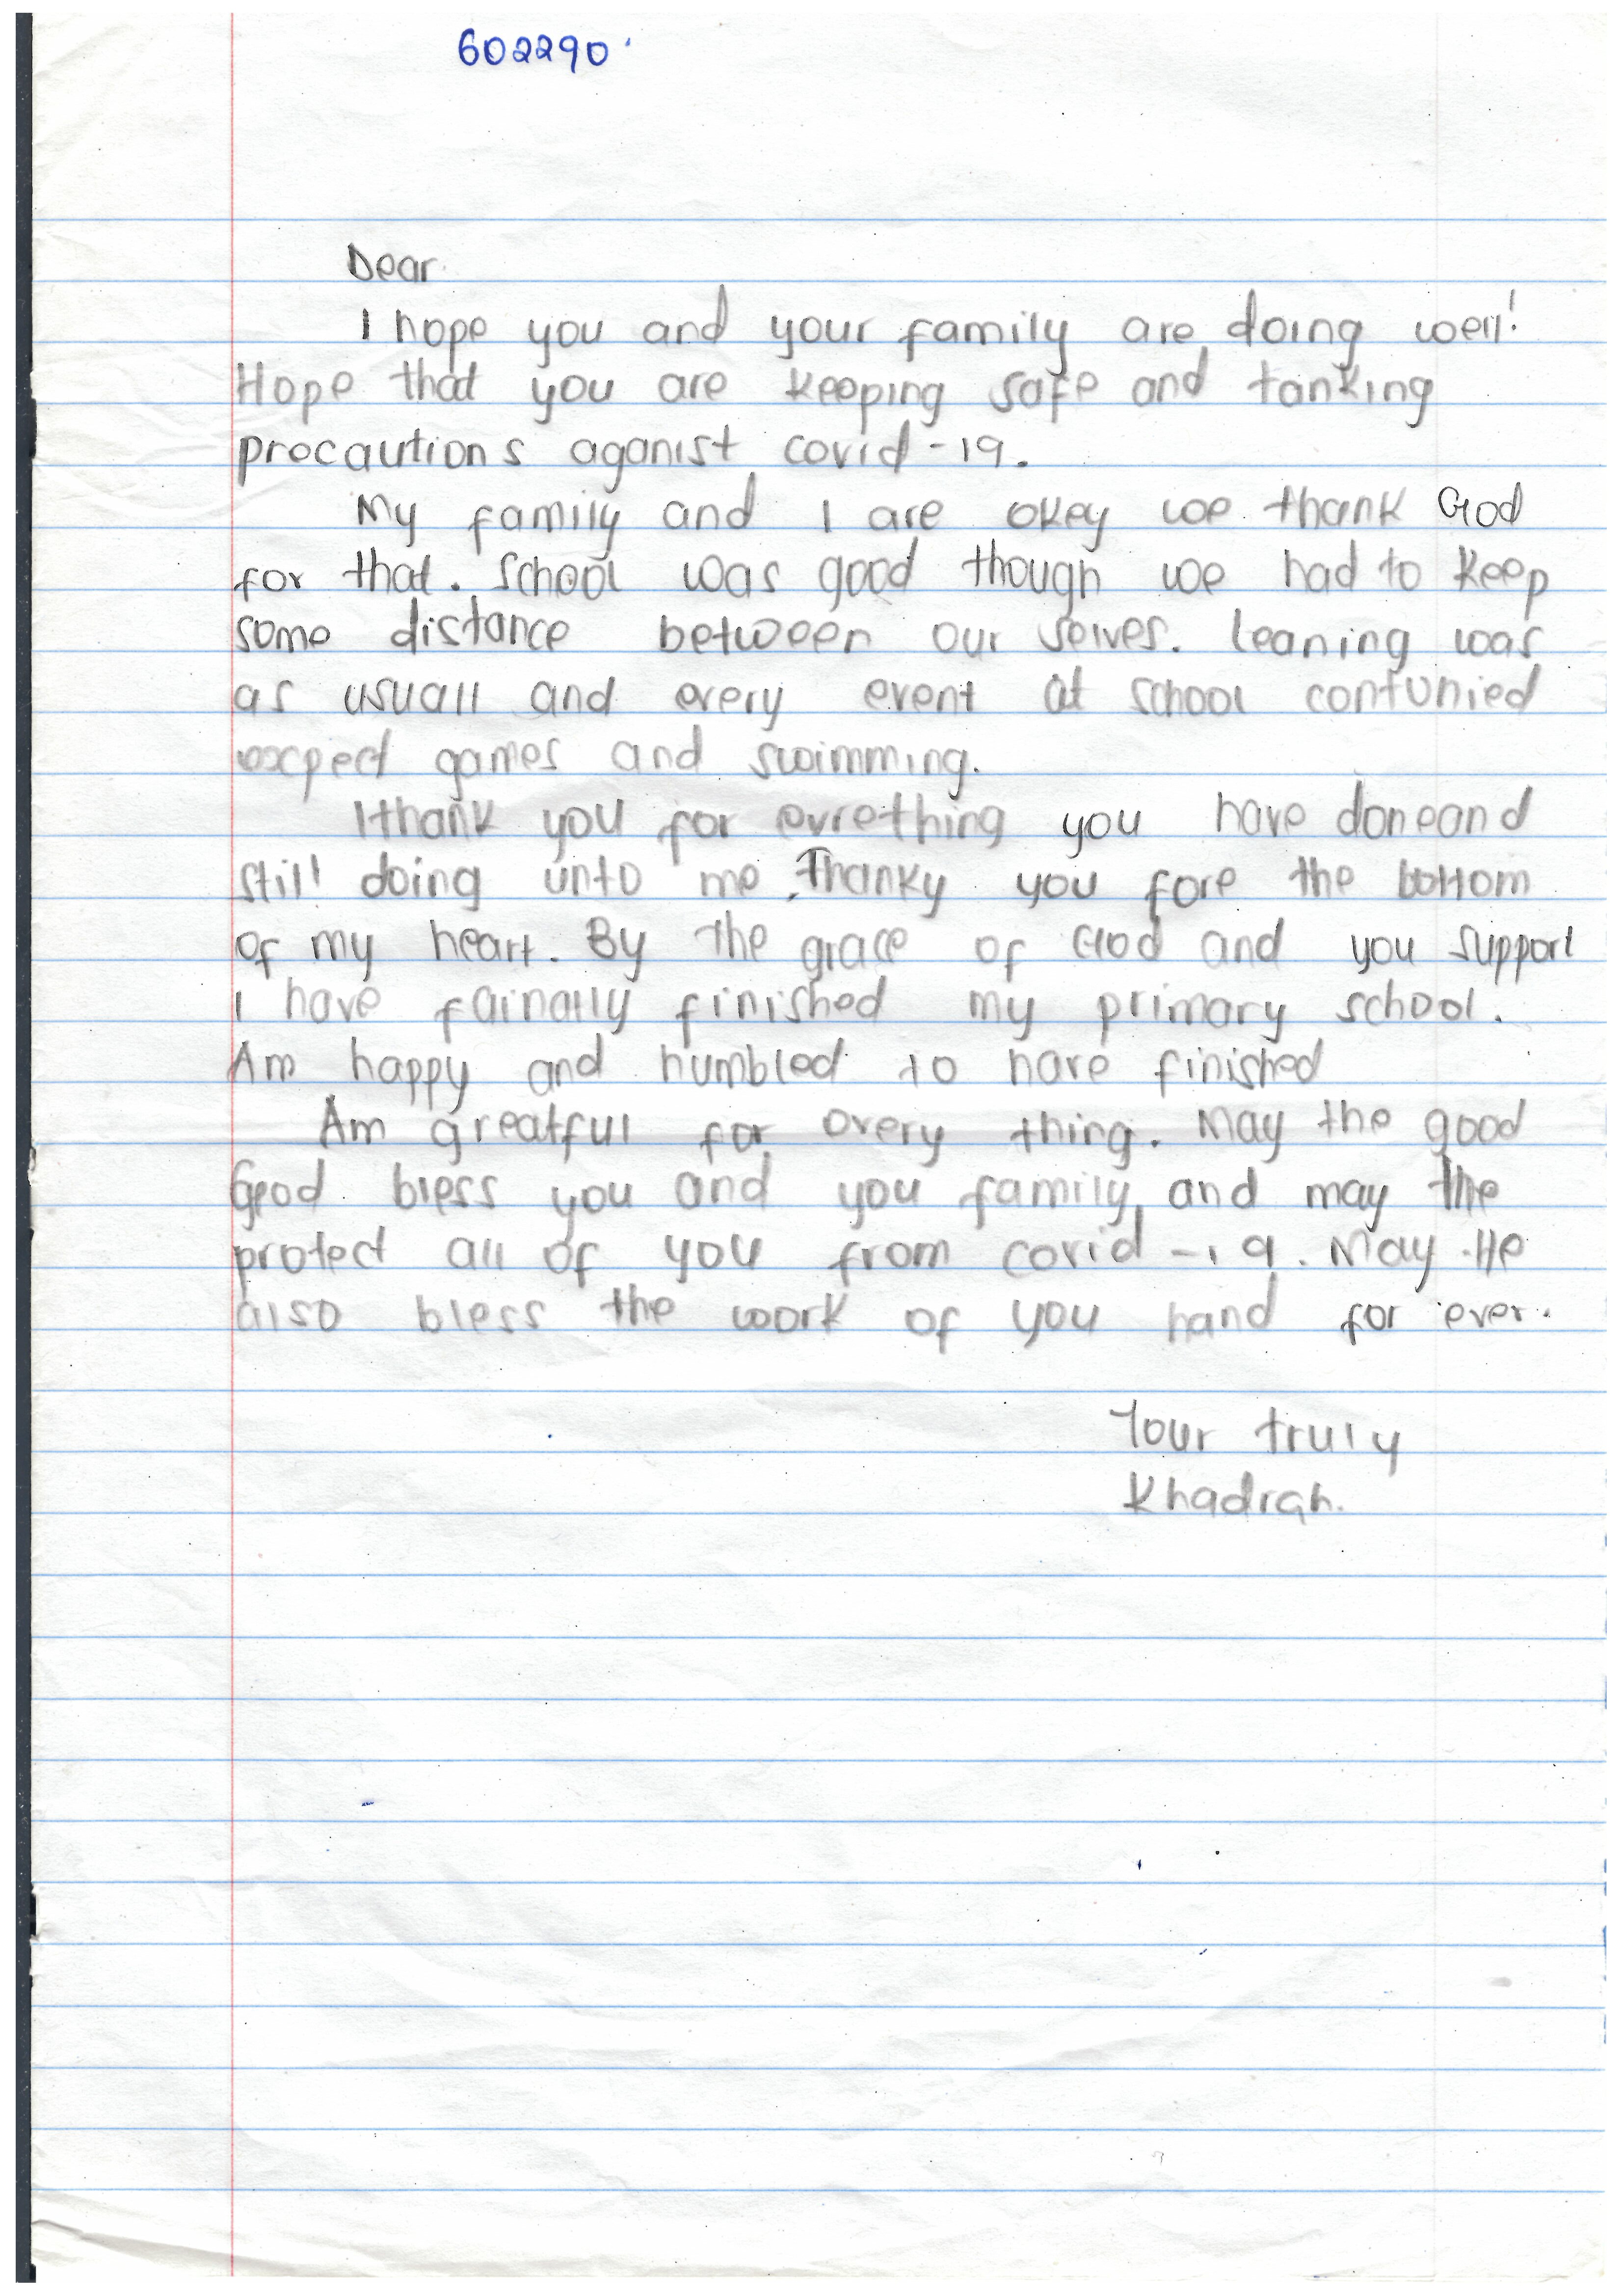 602290
Dear
I hope you and your family are doing well!
Hope that you are keeping safe and tanking
precautions aganist covid-19.
My family and I are okey we thank God
for that. School was good though we had to keep
some distance between our selves. Leaning was
as usuall and every event at school contunied
excpect games and swimming.
I thank you for evrething you have done and
still doing unto me, Thanky you fore the bottom
of my heart. By the grace of God and you support
I have fainally finished my primary school.
Am happy and humbled to have finished
Am greatful for every thing. May the good
God bless you and you family, and may the
protect all of you from covid-19. May He
also bless the work of you hand for ever.
Your truly
Khadrah.